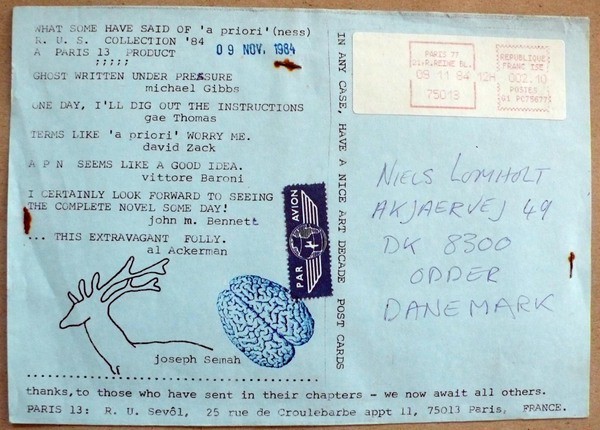 WHAT SOME HAVE SAID OF 'a priori'(ness)
R. U. S. COLLECTION '84
A PARIS 13 PRODUCT
;;;;;
09 NOV. 1984
GHOST WRITTEN UNDER PRESSURE
michael Gibbs
ONE DAY, I'LL DIG OUT THE INSTRUCTIONS
gae Thomas
TERMS LIKE 'a priori' WORRY ME.
david Zack
A P N SEEMS LIKE A GOOD IDEA.
vittore Baroni
I CERTAINLY LOOK FORWARD TO SEEING
THE COMPLETE NOVEL SOME DAY!
john m. Bennett
... THIS EXTRAVAGANT FOLLY.
al Ackerman
joseph Semah
PAR AVION
IN ANY CASE, HAVE A NICE ART DECADE POST CARDS
PARIS 77
09 11 84 12H
75013
REPUBLIQUE
002.10
POSTES
NIELS LOMHOLT
AKJAERVEJ 49
DK 8300
ODDER
DANEMARK
thanks,to those who have sent in their chapters - we now await all others.
PARIS 13: R. U. Sevôl, 25 rue de Croulebarbe appt 11, 75013 Paris, FRANCE.